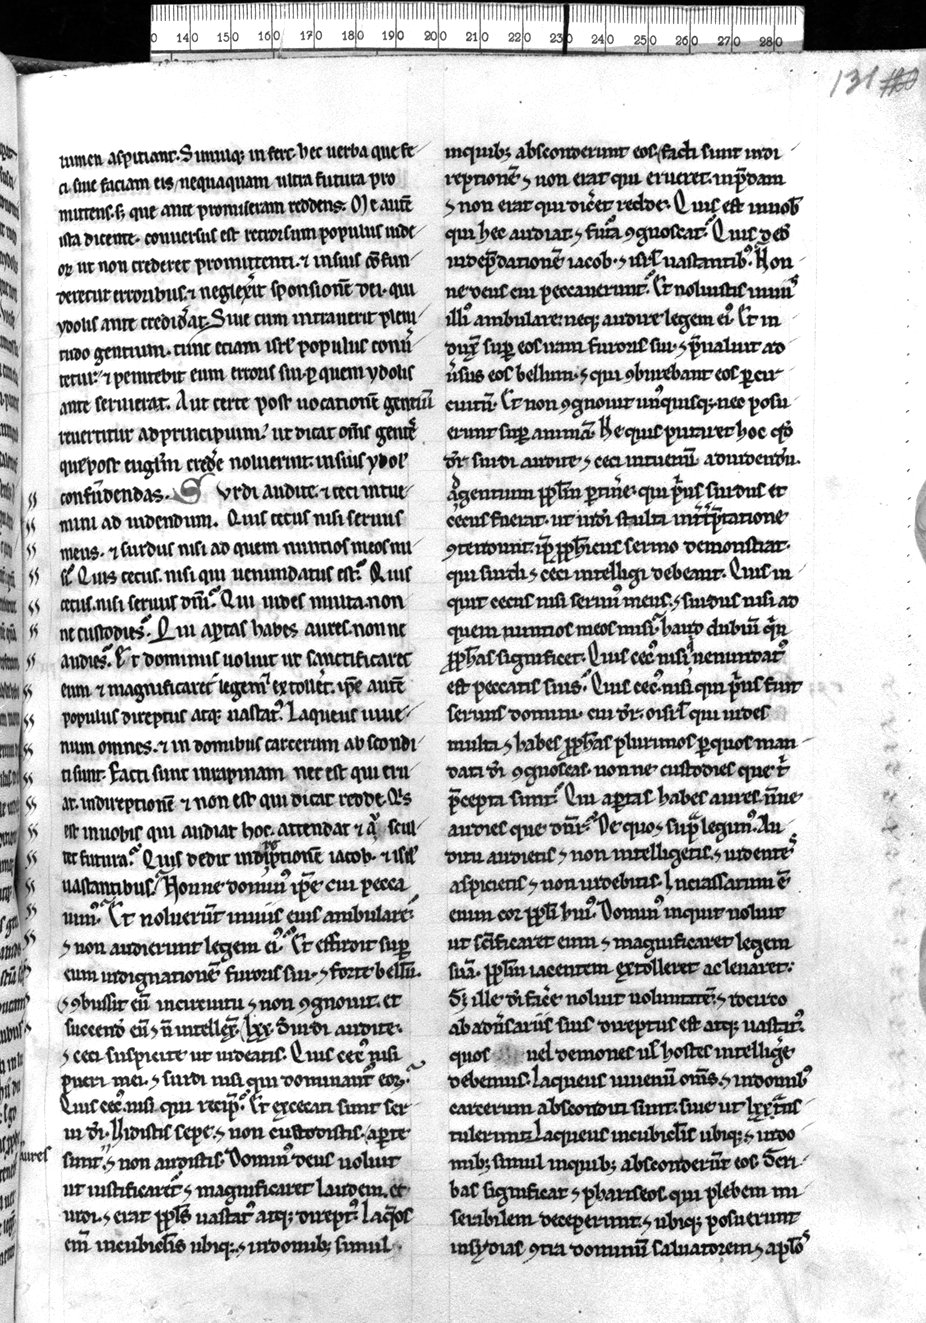 131
lumen aspitiant. Simulq; infert. hec uerba que fe
ci siue faciam eis nequaquam ultra futura pro
mittens. s; que ante promiseram reddens. Me autē
ista dicente. conuersus est retrorsum populus iude
or ut non crederet promittenti. & insuis cōfun
deretur erroribus. & neglexerit sponsionē dei. qui
ydolis ante crediderat. Siue cum intrauerit pleni
tudo gentium. tunc etiam isrł populus conuer
tetur. & penitebit eum erroris sui. per quem ydolis
ante seruierat. Aut certe post uocationē gentiū
reuertitur adprincipium. ut dicat omēs gentes
que post euglm credere noluerint insuis ydol'
confūdendas. Surdi audite. & ceci intue
mini ad uidendum. Quis cecus nisi seruus
meus. & surdus nisi ad quem nuntios meos mi
si. Quis cecus. nisi qui uenundatus est. Quis
cecus. nisi seruus dñi. Qui uides multa. non
ne custodies. Qui apertas habes aures. nonne
audies. Et dominus uoluit ut sanctificaret
eum & magnificaret legem & extolleret. ipse autē
populus direptus atq; uastat'. Laqueus iuue
num omnes. & in domibus carcerum abscondi
ti sunt. Facti sunt inrapinam nec est qui eru
at. indireptionē & non est qui dicat redde. Quis
est inuobis qui audiat hoc. attendat & auscul
tet futura. Quis dedit indireptionē iacob. & isrł
uastantibus. Nonne dominus ipse cui pecca
uim'. Et noluerūt inuiis eius ambulare.
& non audierunt legem ei'. Et effudit super
eum indignationē furoris sui. & forte bellū.
& combussit eū incircuitu & non cognouit. et
succendit eū. & ñ intellexit. lxx. Surdi audite.
& ceci suspicite ut uideatis. Quis cec' nisi
pueri mei. & surdi nisi qui dominant' eor.
Quis cec'. nisi qui recip. Et excecati sunt ser
ui di. Uidistis sepe. & non custodistis. aperte
aures
sunt & non audistis. Domin' deus uoluit
ut iustificaret & magnificaret laudem. et
uidi. & erat ppls uastat' atq; dirept'. Laqueos
enī incubiclis ubiq;. & indomib; simul
inquib; absconderunt eos. facti sunt indi
reptionē & non erat qui erueret. inpredam
& non erat qui diceret redde. Quis est inuob
qui hec audiat. & futura cognoscat. Quis dedit
indepredationē iacob. & isrł uastantib'. Non
ne deus cui peccauerunt. Et noluistis inuiis
illi' ambulare. neq; audire legem ei'. Et in
duxit super eos iram furoris sui. & preualuit ad
uersus eos bellum. & qui comburebant eos percir
cuitū. Et non cognouit unusquisq;. nec posu
erunt super animā. Ne quis putaret hoc quod
dr surdi audite & ceci intuemini aduidendū.
adgentium pplm pertinere. qui prius surdus et
cecus fuerat. ut iudei stulti interpretatione
contendunt. ipse ppheticus sermo demonstrat.
qui surdi & ceci intelligi debeant. Quis in
quit cecus nisi seruus meus. & surdus nisi ad
quem nuntios meos misi. haud dubiū quin
pphas significet. Quis cec' nisi qui uenundat'
est peccatis suis. Quis cec'. nisi qui prius fuit
seruus domini. cui dr. o isrł qui uides
multa & habes pphas plurimos per quos man
data di cognoscas. nonne custodies que tibi
precepta sunt. Qui apertas habes aures. nonne
audies que dnr. De quo & supra legimus. Au
ditu audietis & non intelligetis. & uidentes
aspicietis & non uidebitis. Incrassatum est
enim cor ppli hui'. Domin' inquit uoluit
ut scificaret eum & magnificaret legem
suā. pplm iacentem extolleret ac leuaret.
Si ille di facere noluit uoluntatē. & idcirco
ab aduersariis suis direptus est atq; uastat'.
quos uel demones uł hostes intelligere
debemus. Laqueus iuuenū omēs. & indomib'
carcerum absconditi sunt. siue ut lxx. trans
tulerunt. Laqueus incubiclis ubiq;. & indo
mib; simul inquib; absconderūt eos. Scri
bas significat & phariseos. qui plebem mi
serabilem deceperunt. & ubiq; posuerunt
insydias contra dominū saluatorem & aplos